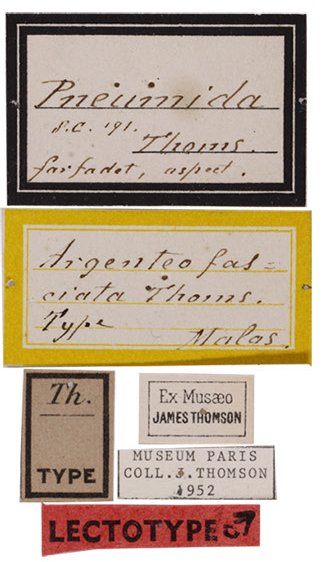 Pneumida
S.C. 191.
Thoms.
farfadet, aspect.
Argenteo fas=
ciata Thoms.
Type
Malas.
Th.
TYPE
Ex Musæo
JAMES THOMSON
MUSEUM PARIS
COLL. J. THOMSON
1952
LECTOTYPE ♂